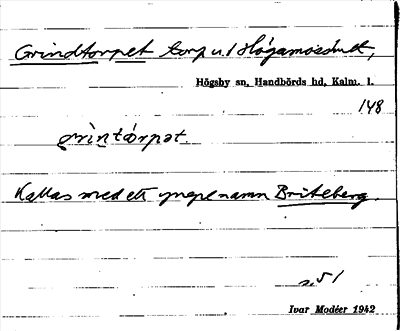 Grindtorpet torp u.
Högsby sn, Handbörds hd, Kalm. l.
148
grìntórpət.
Kallas med ett yngre namn Briteberg.
s. 51
Ivar Modéer 1942